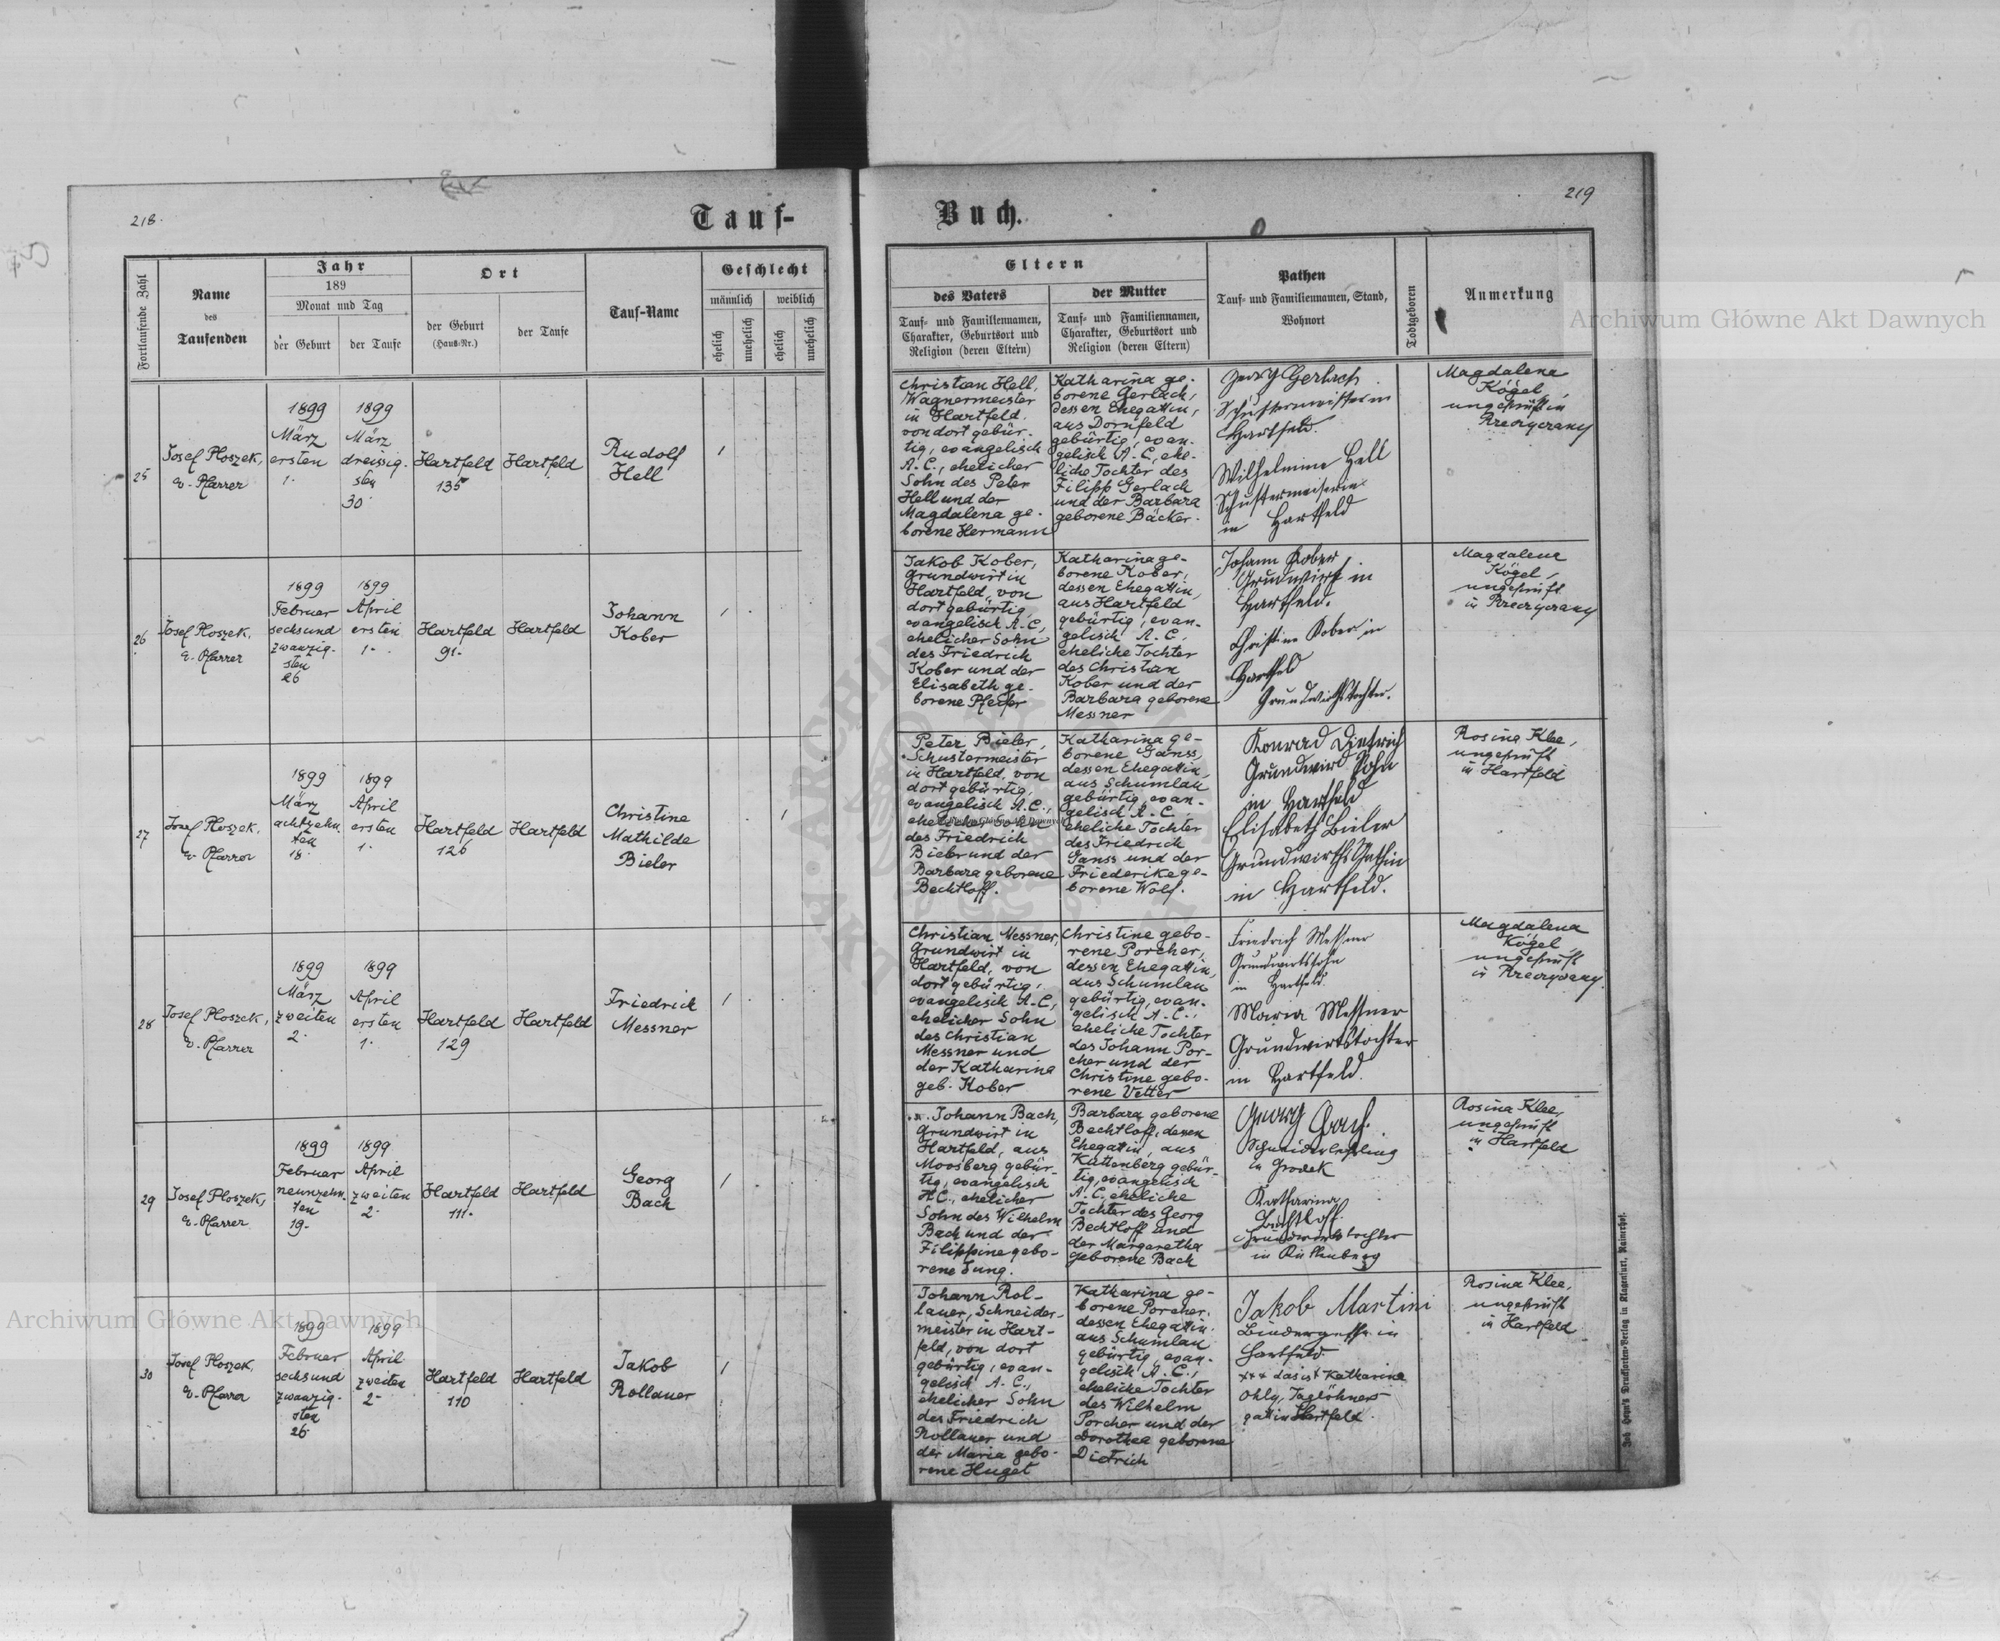 218.
219
Tauf-
Buch.
Fortlaufende Zahl
Name
des
Taufenden
Jahr
189
Monat und Tag
der Geburt
der Taufe
Ort
der Geburt
(Haus-Nr.)
der Taufe
Tauf-Name
Geschlecht
männlich
weiblich
ehelich
unehelich
ehelich
unehelich
Eltern
des Vaters
Tauf- und Familiennamen,
Charakter, Geburtsort und
Religion (deren Eltern)
der Mutter
Tauf- und Familiennamen,
Charakter, Geburtsort und
Religion (deren Eltern)
Pathen
Tauf- und Familiennamen, Stand,
Wohnort
Todtgeboren
Anmerkung
25
Josef Ploszek,
ev. Pfarrer
1899
März
ersten
1.
1899
März
dreissig-
sten
30.
Hartfeld
135
Hartfeld
Rudolf
Hell
1
Christian Hell,
Wagnermeister
in Hartfeld,
von dort gebür-
tig, evangelisch
A. C., ehelicher
Sohn des Peter
Hell und der
Magdalena ge-
borene Hermann
Katharina ge-
borene Gerlach,
dessen Ehegattin,
aus Dornfeld
gebürtig, evan-
gelisch A. C., ehe-
liche Tochter des
Filipp Gerlach
und der Barbara
geborene Bäcker.
Georg Gerlach
Schustermeister in
Hartfeld.
Wilhelmine Hell
Schustermeisterin
in Hartfeld
Magdalena
Kögel,
ungeprüft in
Rzeczyczany
26
Josef Ploszek,
ev. Pfarrer
1899
Februar
sechsund
zwanzig-
sten
26
1899
April
ersten
1.
Hartfeld
91.
Hartfeld
Johann
Kober
1
Jakob Kober,
Grundwirt in
Hartfeld, von
dort gebürtig,
evangelisch A. C.,
ehelicher Sohn
des Friedrich
Kober und der
Elisabeth ge-
borene Pfeifer
Katharina ge-
borene Kober,
dessen Ehegattin,
aus Hartfeld
gebürtig, evan-
gelisch A. C.,
eheliche Tochter
des Christian
Kober und der
Barbara geborene
Messner
Johann Kober
Grundwirt in
Hartfeld.
Christine Kober in
Hartfeld
Grundwirthstochter.
Magdalena
Kögel,
ungeprüft
in Rzeczyczany
27
Josef Ploszek,
ev. Pfarrer
1899
März
achtzehn-
ten
18.
1899
April
ersten
1.
Hartfeld
126
Hartfeld
Christine
Mathilde
Bieler
1
Peter Bieler,
Schustermeister
in Hartfeld, von
dort gebürtig,
evangelisch A. C.,
ehelicher Sohn
des Friedrich
Bieler und der
Barbara geborene
Bechtloff.
Katharina ge-
borene Ganss,
dessen Ehegattin,
aus Schumlau
gebürtig, evan-
gelisch A. C.,
eheliche Tochter
des Friedrich
Ganss und der
Friederike ge-
borene Wolf.
Konrad Dietrich
Grundwird Sohn
in Hartfeld
Elisabeth Bieler
Grundwirths Gattin
in Hartfeld.
Rosina Klee,
ungeprüft
in Hartfeld
28
Josef Ploszek,
ev. Pfarrer
1899
März
zweiten
2.
1899
April
ersten
1.
Hartfeld
129
Hartfeld
Friedrich
Messner
1
Christian Messner,
Grundwirt in
Hartfeld, von
dort gebürtig,
evangelisch A. C.,
ehelicher Sohn
des Christian
Messner und
der Katharina
geb. Kober
Christine gebo-
rene Porcher,
dessen Ehegattin,
aus Schumlau
gebürtig, evan-
gelisch A. C.,
eheliche Tochter
des Johann Por-
cher und der
Christine gebo-
rene Vetter
Friedrich Messner
Grundwirtssohn
in Hartfeld.
Maria Messner
Grundwirtstochter
in Hartfeld.
Magdalena
Kögel,
ungeprüft
in Rzeczyczany.
29
Josef Ploszek,
ev. Pfarrer
1899
Februar
neunzehn-
ten
19.
1899
April
zweiten
2.
Hartfeld
111.
Hartfeld
Georg
Bach
1
Johann Bach,
Grundwirt in
Hartfeld, aus
Moosberg gebür-
tig, evangelisch
H. C., ehelicher
Sohn des Wilhelm
Bach und der
Filippine gebo-
rene Jung.
Barbara geborene
Bechtloff, dessen
Ehegattin, aus
Kuttenberg gebür-
tig, evangelisch
A. C., eheliche
Tochter des Georg
Bechtloff und
der Margaretha
geborene Bach
Georg Bach.
Schneiderlehrling
in Grodek
Katharina
Bechtloff
Grundwirtstochter
in Kuttenberg
Rosina Klee,
ungeprüft
in Hartfeld
30
Josef Ploszek,
ev. Pfarrer
1899
Februar
sechsund
zwanzig-
sten
26.
1899
April
zweiten
2.
Hartfeld
110
Hartfeld
Jakob
Rollauer
1
Johann Rol-
lauer, Schneider-
meister in Hart-
feld, von dort
gebürtig, evan-
gelisch A. C.,
ehelicher Sohn
des Friedrich
Rollauer und
der Maria gebo-
rene Huget
Katharina ge-
borene Porcher,
dessen Ehegattin
aus Schumlau
gebürtig, evan-
gelisch A. C.,
eheliche Tochter
des Wilhelm
Porcher und der
Dorothea geborene
Dietrich
Jakob Martini
in
Hartfeld
+++ das ist Katharine
Ohly, Taglöhners-
gattin Hartfeld.
Rosina Klee,
ungeprüft
in Hartfeld
Joh. Leon's Drucksorten-Verlag in Klagenfurt, Rainerhof.
Archiwum Główne Akt Dawnych
Archiwum Główne Akt Dawnych